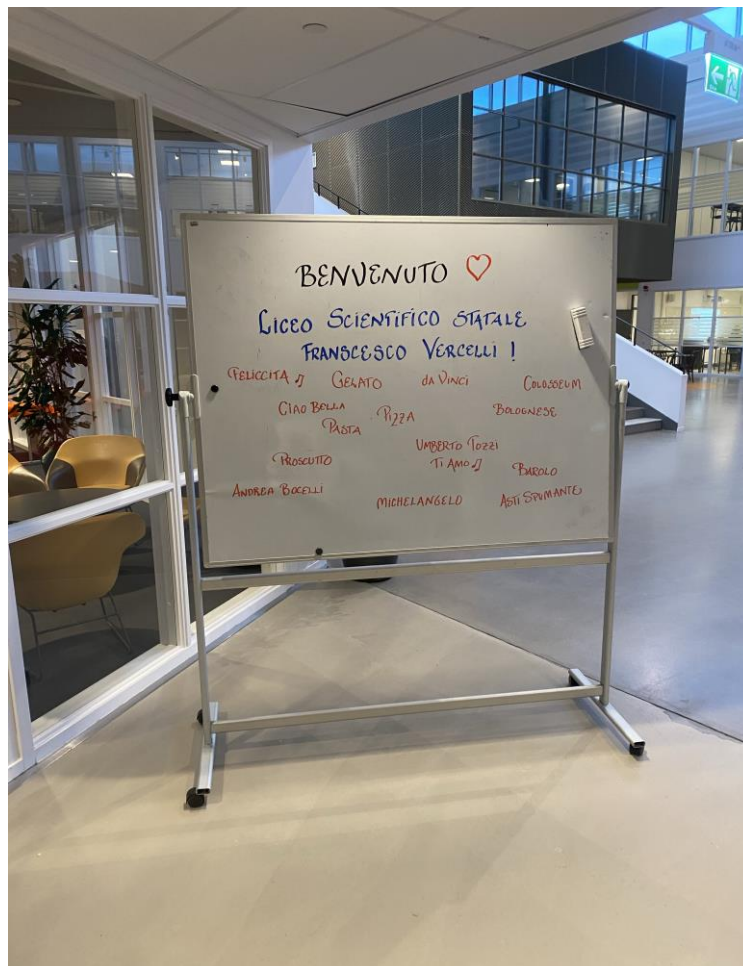 BENVENUTO ♡
LICEO SCIENTIFICO STATALE
FRANSCESCO VERCELLI !
FELICCITA ♫ GELATO da VINCI COLOSSEUM
CIAO BELLA PIZZA BOLOGNESE
PASTA
UMBERTO TOZZI
PROSCUTTO TI AMO ♫ BAROLO
ANDREA BOCELLI MICHELANGELO ASTI SPUMANTE